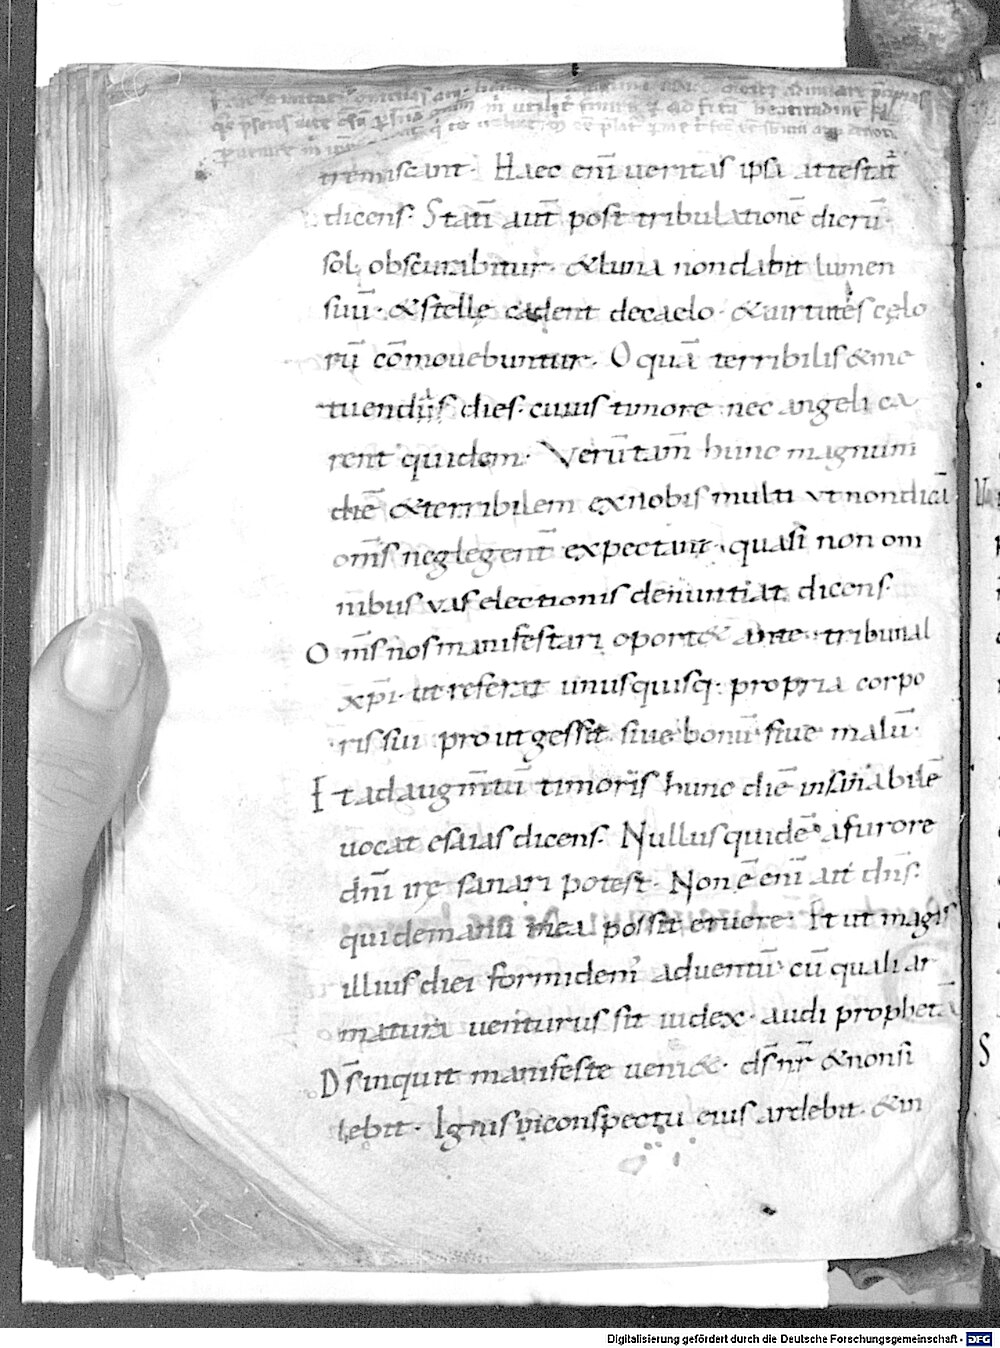 tremiscant. Haec eni̅ ueritas ipsa attestat̅
dicens. Stati̅ aut̅ post tribulatione̅ dieru̅.
sol obscurabitur. & luna non dabit lumen
suu̅. & stelle cadent de caelo. & uirtutes celo
ru̅ co̅mouebuntur. O qua̅ terribilis & me
tuendus dies. cuius timore nec angeli ca
rent quidem. Veru̅tam̅ hunc magnum
die̅ & terribilem ex nobis multi vt non dica̅
om̅s neglegent̅ expectant. quasi non om
nibus vas electionis denuntiat dicens.
Om̅s nos manifestari oport& ante tribunal
xp̅i. ut referat unusquisq. propria corpo
ris sui prout gessit. siue bonu̅ siue malu̅.
Et ad augm̅tu̅ timoris hunc die̅ insanabile̅
uocat esaias dicens. Nullus quide̅ a furore
dn̅i irę sanari potest. Non e̅ eni̅ ait dn̅s.
qui de manu mea possit eruere. Et ut magis
illius diei formidem aduentu̅ cu̅ quali ar
matura uenturus sit iudex. audi propheta̅
D̅s inquit manifeste ueni&. d̅s nr̅ & non si
lebit. Ignis in conspectu eius ardebit. & in
Digitalisierung gefördert durch die Deutsche Forschungsgemeinschaft - DFG